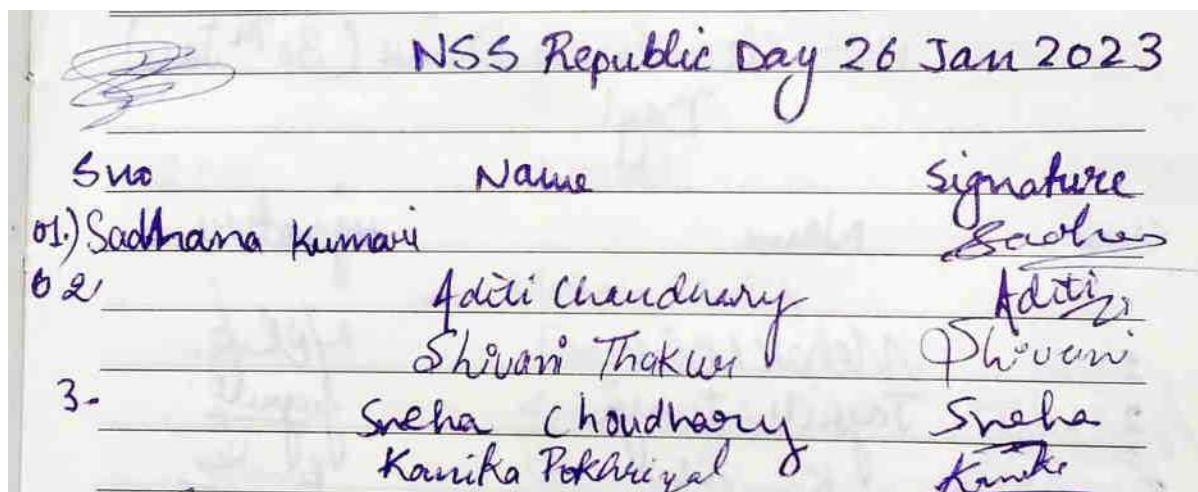 NSS Republic Day 26 Jan 2023
S no Name Signature
01.) Sadhana Kumari Sadhna
02 Aditi Chaudhary Aditi
Shivani Thakur Shivani
3- Sneha Choudhary Sneha
Kanika Pokhriyal Kanika